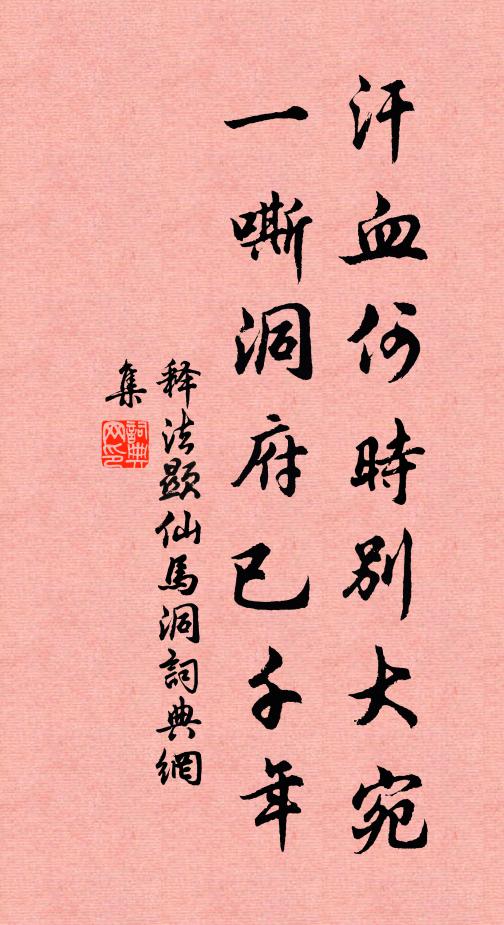 汗血何時別大宛
一嘶洞府已千年
释法顯仙馬洞詞典網
集
詞典
网印